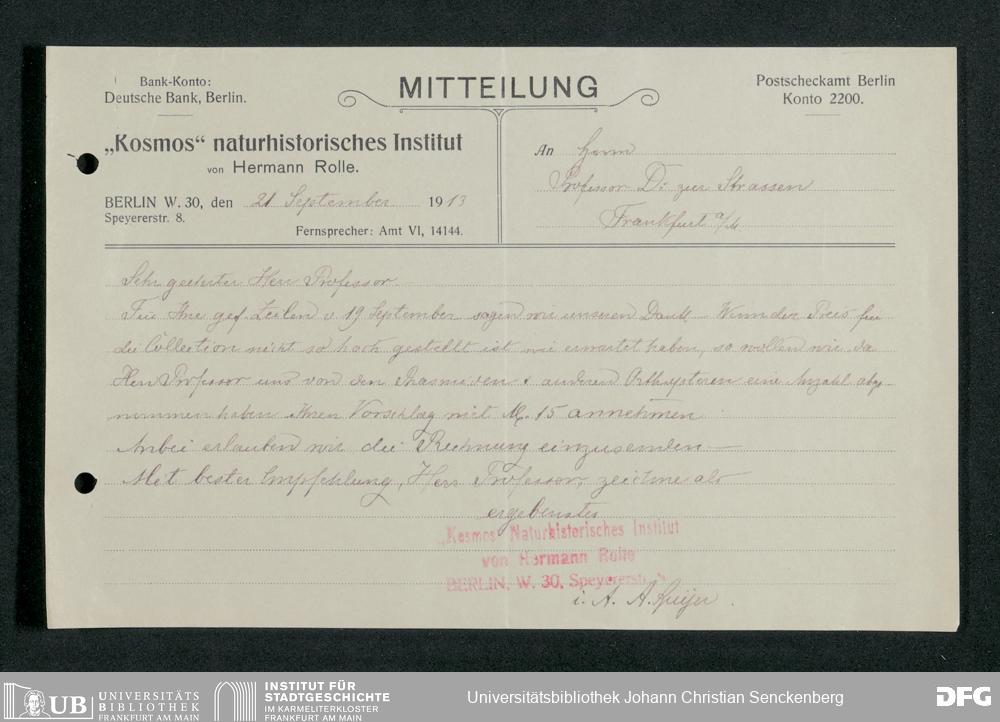 Bank-Konto:
Deutsche Bank, Berlin.
MITTEILUNG
Postscheckamt Berlin
Konto 2200.
„Kosmos“ naturhistorisches Institut
von Hermann Rolle.
BERLIN W. 30, den 21 September 1913
Speyererstr. 8.
Fernsprecher: Amt VI, 14144.
An Herrn
Professor Dr zur Strassen
Frankfurt a/M
Sehr geehrter Herr Professor
Für Ihre gef. Zeilen v 19 September sagen wir unseren Dank. Wenn der Preis für
die Collection nicht so hoch gestellt ist wie erwartet haben, so wollen wir, da
Herr Professor uns von den Phasmiden & anderen Orthopteren eine Anzahl abge-
nommen haben Ihren Vorschlag mit M. 15 annehmen
Anbei erlauben wir die Rechnung einzusenden
Mit bester Empfehlung, Herr Professor, zeichne als
ergebenster
„Kosmos“ Naturhistorisches Institut
von Hermann Rolle
BERLIN, W. 30, Speyererstr.
i. A. A.
UB
UNIVERSITÄTS
BIBLIOTHEK
FRANKFURT AM MAIN
INSTITUT FÜR
STADTGESCHICHTE
IM KARMELITERKLOSTER
FRANKFURT AM MAIN
Universitätsbibliothek Johann Christian Senckenberg
DFG